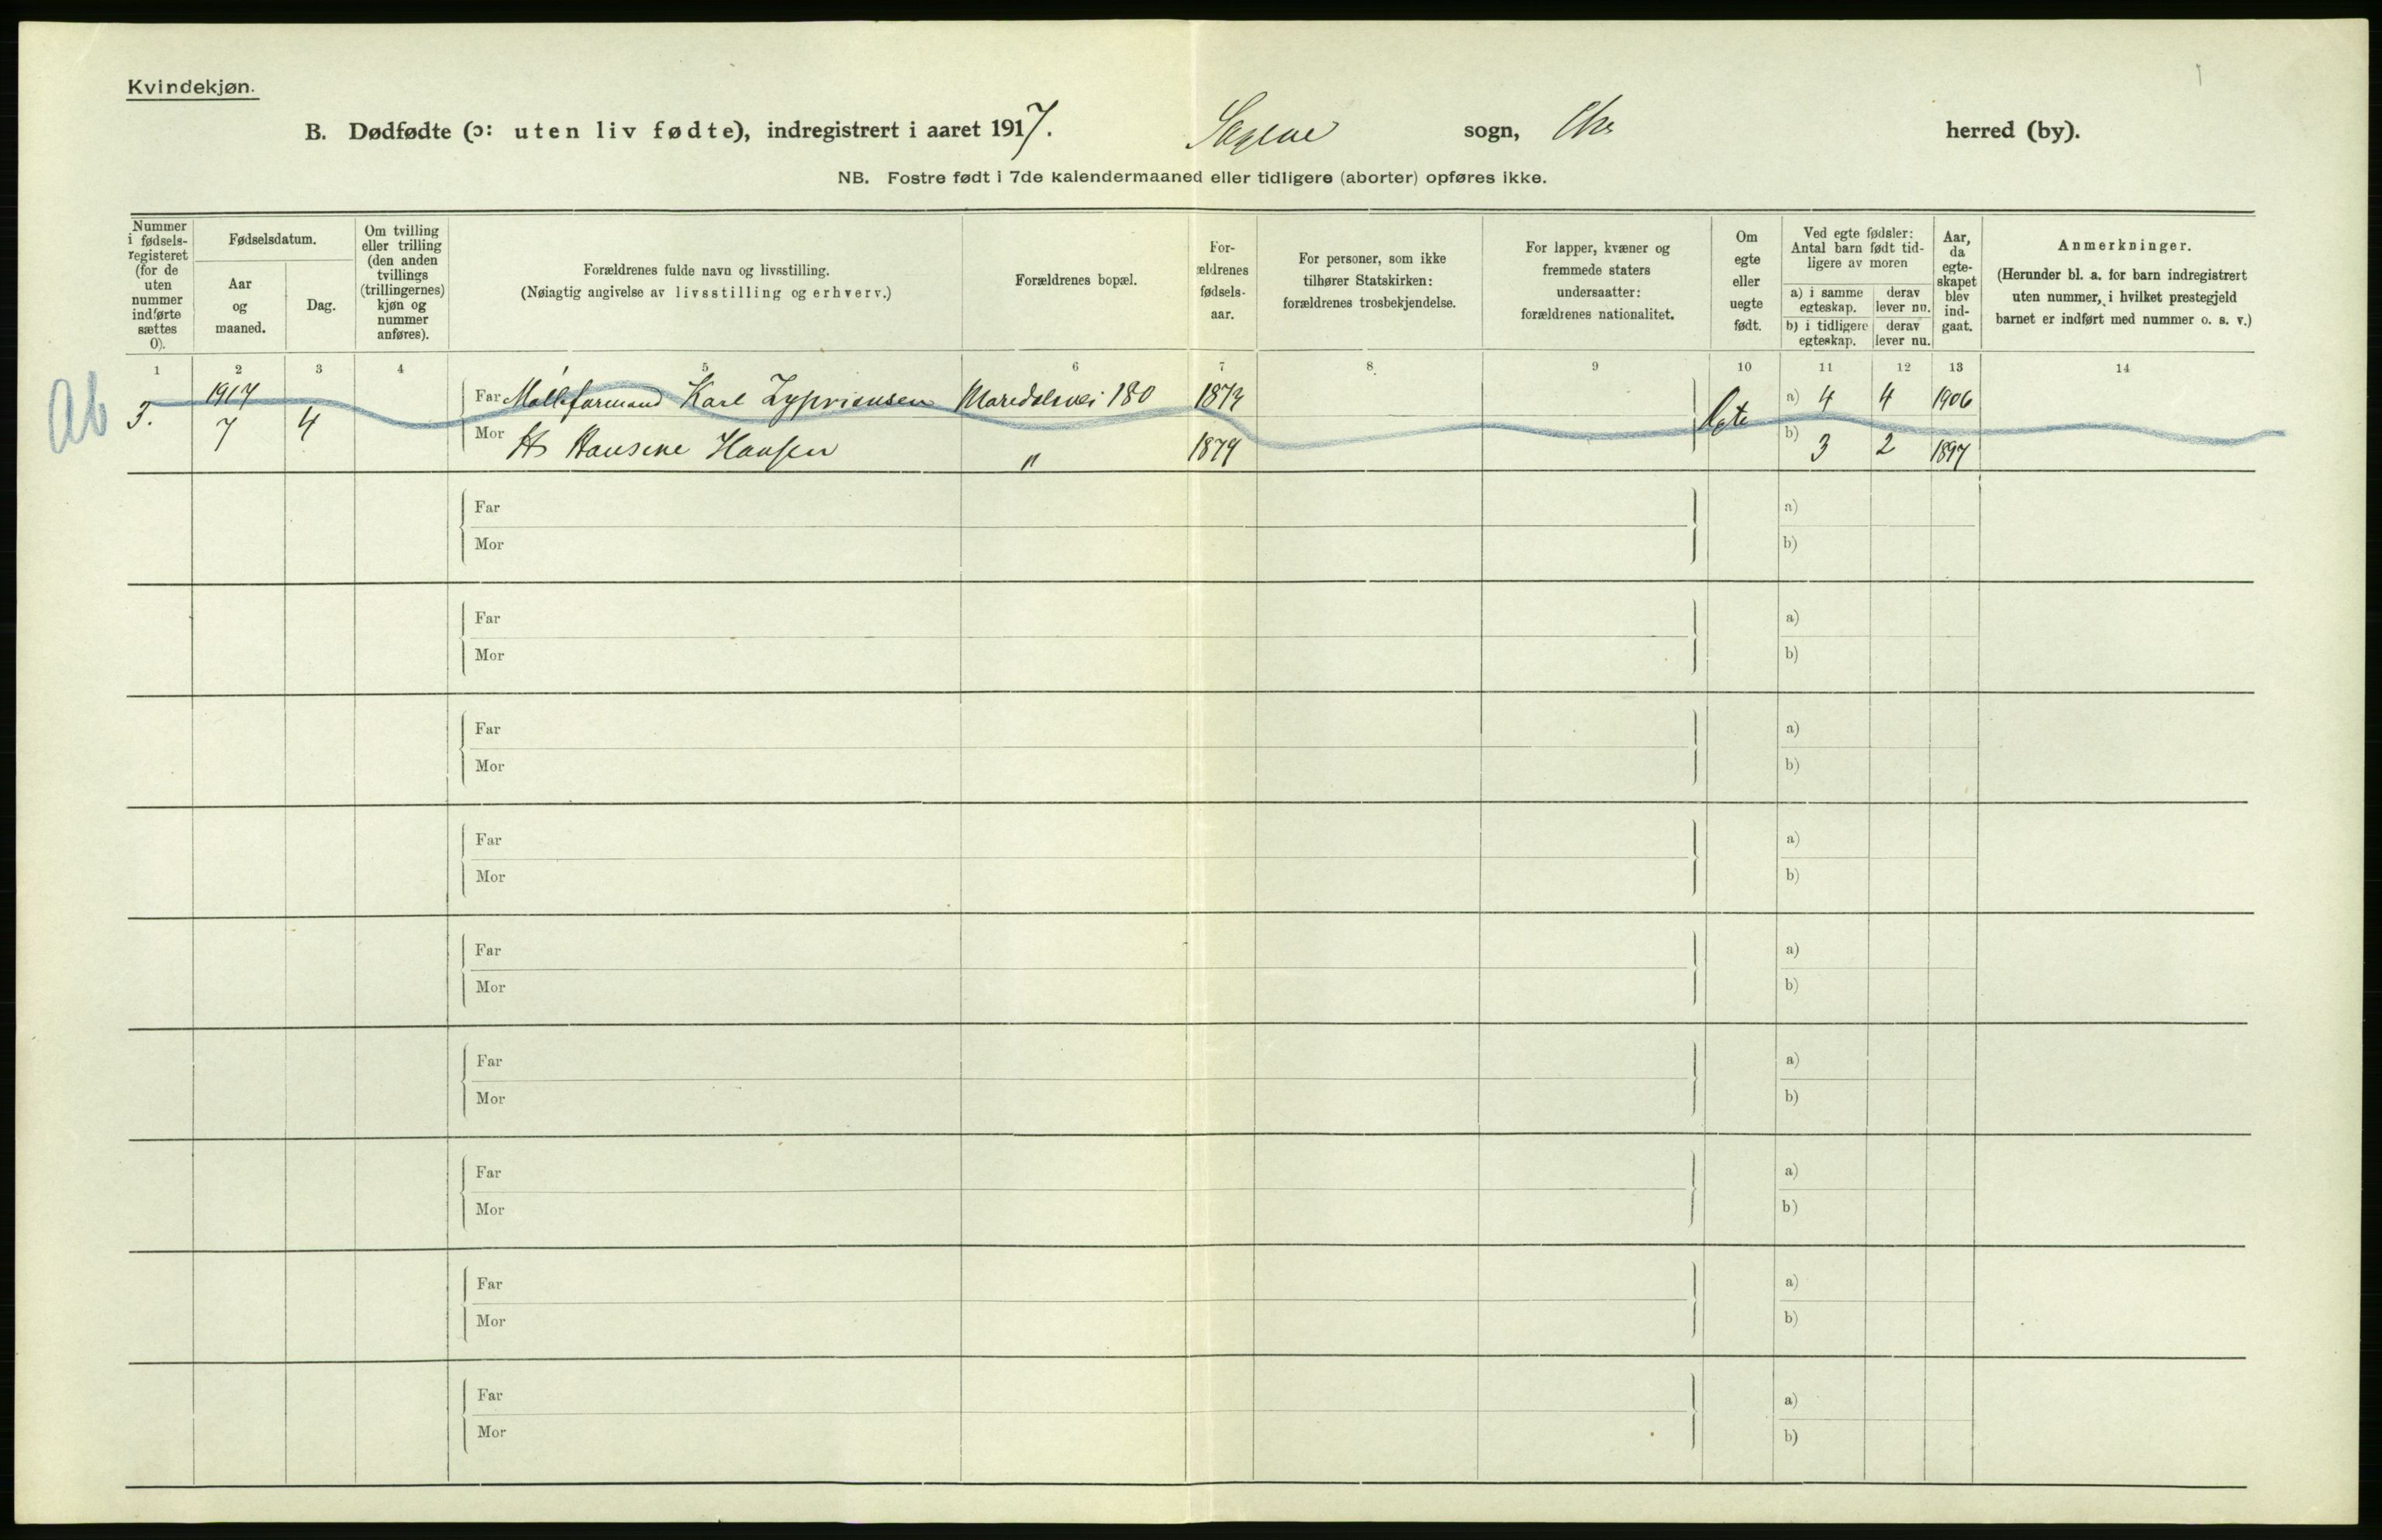 Kvindekjøn.
B. Dødfødte (ɔ: uten liv fødte), indregistrert i aaret 1917. Sagene sogn, Chr herred (by).
NB. Fostre født i 7de kalendermaaned eller tidligere (aborter) opføres ikke.
Nummer i fødsels-registeret (for de uten nummer indførte sættes 0).
Fødselsdatum.
Aar og maaned.
Dag.
Om tvilling eller trilling (den anden tvillings (trillingernes) kjøn og nummer anføres).
Forældrenes fulde navn og livsstilling.
(Nøiagtig angivelse av livsstilling og erhverv.)
Forældrenes bopæl.
For-ældrenes fødsels-aar.
For personer, som ikke tilhører Statskirken: forældrenes trosbekjendelse.
For lapper, kvæner og fremmede staters undersaatter: forældrenes nationalitet.
Om egte eller uegte født.
Ved egte fødsler: Antal barn født tid-ligere av moren
a) i samme egteskap.
derav lever nu.
b) i tidligere egteskap.
derav lever nu.
Aar, da egte-skapet blev ind-gaat.
Anmerkninger.
(Herunder bl. a. for barn indregistrert uten nummer, i hvilket prestegjeld barnet er indført med nummer o. s. v.)
1 2 3 4 5 6 7 8 9 10 11 12 13 14
Ab
3. 1917 7 4
Far Mølleformand Karl Zypriansen Maridalsvei 180 1873 Egte a) 4 4 1906
Mor H Hansine Hansen " 1879 b) 3 2 1897
Far a)
Mor b)
Far a)
Mor b)
Far a)
Mor b)
Far a)
Mor b)
Far a)
Mor b)
Far a)
Mor b)
Far a)
Mor b)
Far a)
Mor b)
Far a)
Mor b)